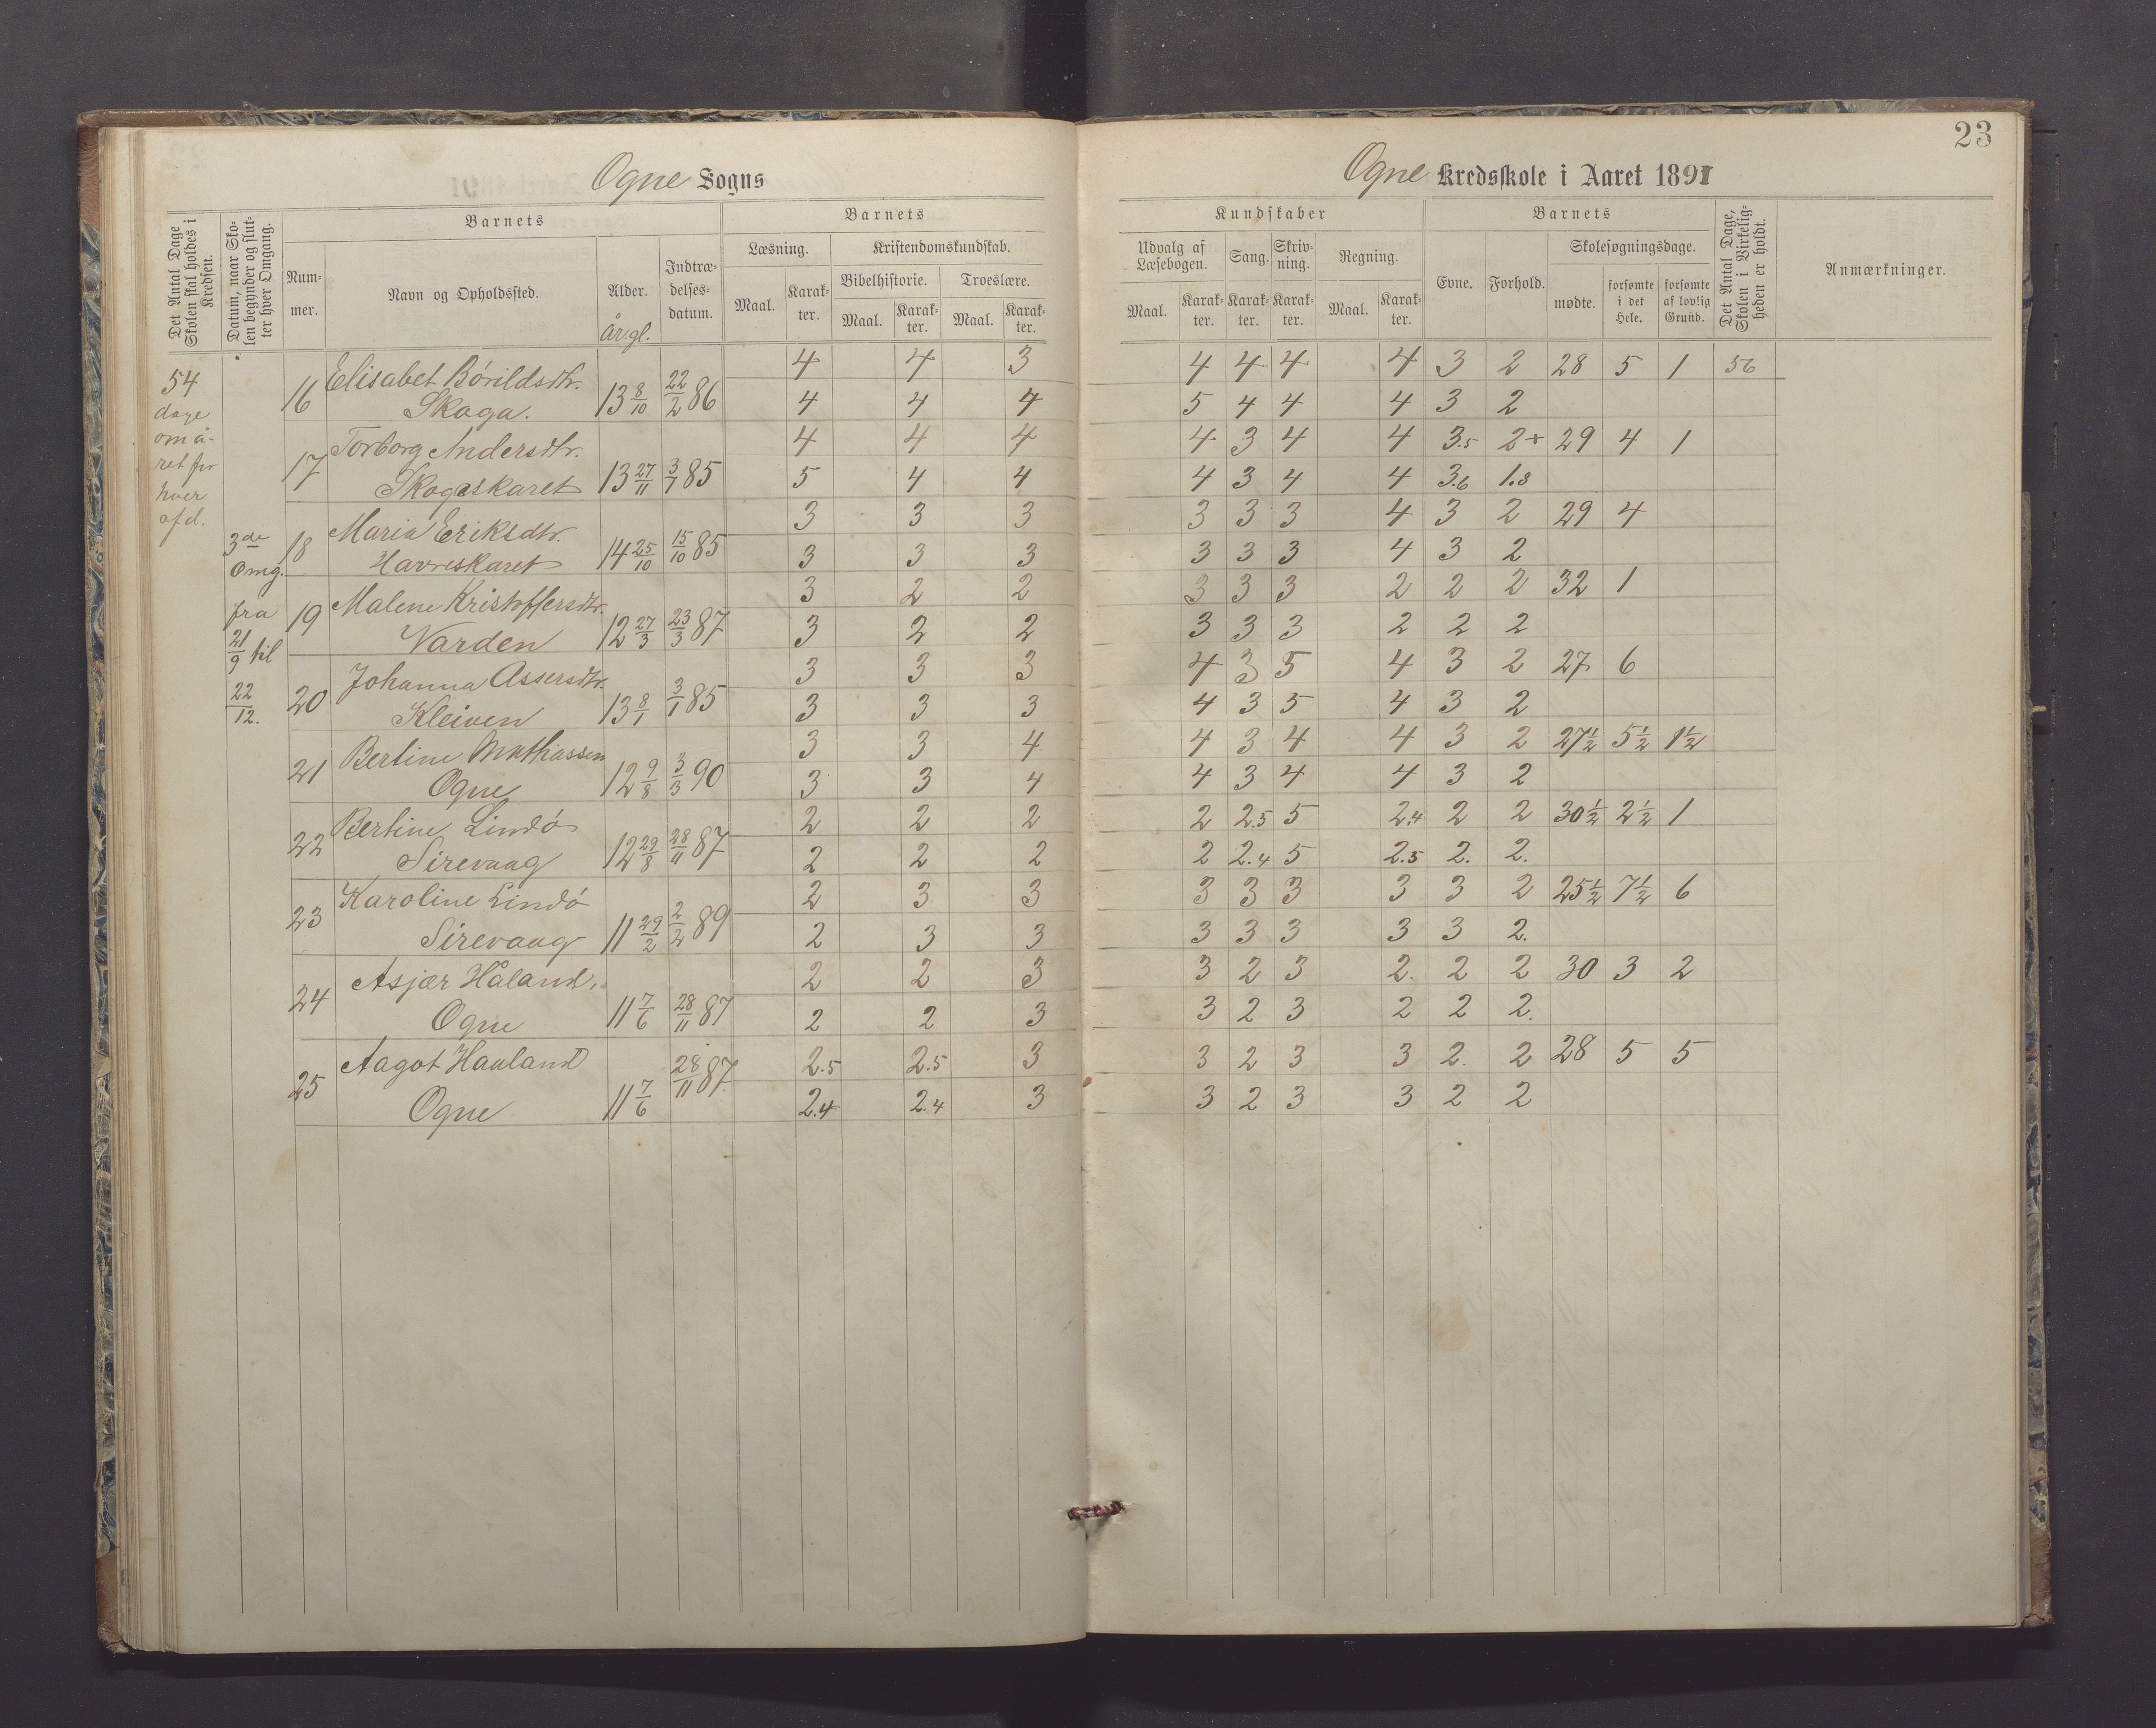 Ogne Sogns
Ogne Kredsskole i Aaret 1891
23
Det Antal Dage Skolen skal holdes i Kredsen.
Datum, naar Skolen begynder og slutter hver Omgang.
Barnets
Nummer.
Navn og Opholdssted.
Alder.
År. gl.
Indtrædelsesdatum.
Barnets
Læsning.
Kristendomskundskab.
Bibelhistorie.
Troeslære.
Maal. Karakter. Maal. Karakter. Maal. Karakter.
Kundskaber
Udvalg af Læsebogen.
Sang.
Skrivning.
Regning.
Maal. Karakter. Karakter. Karakter. Maal. Karakter.
Barnets
Evne. Forhold.
Skolesøgningsdage.
mødte. forsømte i det Hele. forsømte af lovlig Grund.
Det Antal Dage, Skolen i Virkeligheden er holdt.
Anmærkninger.
54
dage
om å-
ret for
hver
afd.
3de
Omg.
fra
21/9 til
22/12.
16 Elisabet Börildsdtr. 4 4 3 4 4 4 4 3 2 28 5 1 56
Skoga. 13 8/10 22/2 86 4 4 4 5 4 4 4 3 2
17 Torborg Andersdtr. 4 4 4 4 3 4 4 3.5 2+ 29 4 1
Skogaskaret 13 27/11 3/1 85 5 4 4 4 3 4 4 3.6 1.8
18 Maria Eriksdtr. 3 3 3 3 3 3 4 3 2 29 4
Havreskaret 14 25/10 15/10 85 3 3 3 3 3 3 4 3 2
19 Malene Kristoffersdtr. 3 2 2 3 3 3 2 2 2 32 1
Varden 12 27/3 23/3 87 3 2 2 3 3 3 2 2 2
20 Johanna Assersdtr. 3 3 3 4 3 5 4 3 2 27 6
Kleiven 13 8/1 3/1 85 3 3 3 4 3 5 4 3 2
21 Bertine Mathiassen 3 3 4 4 3 4 4 3 2 27½ 5½ 1½
Ogne 12 9/8 3/3 90 3 3 4 4 3 4 4 3 2
22 Bertine Lindö 2 2 2 2 2.5 5 2.4 2 2 30½ 2½ 1
Sirevaag 12 29/8 28/11 87 2 2 2 2 2.4 5 2.5 2. 2.
23 Karoline Lindö 2 3 3 3 3 3 3 3 2 25½ 7½ 6
Sirevaag 11 29/2 2/2 89 2 3 3 3 3 3 3 3 2.
24 Asjær Håland. 2 2 3 3 2 3 2. 2 2 30 3 2
Ogne 11 7/6 28/11 87 2 2 3 3 2 3 2 2 2.
25 Aagot Haaland 28/11 87 2.5 2.5 3 3 2 3 3 2. 2 28 5 5
Ogne 11 7/6 2.4 2.4 3 3 2 3 3 2 2